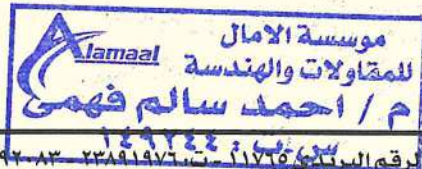 Alamaal
موسسة الامال
للمقاولات والهندسة
م / احمد سالم فهمى
س.ب : ١٤٩٢٤٤
لرقم البريدى ١١٧٦٥ - ت: ٢٣٨٩١٩٧٦ -